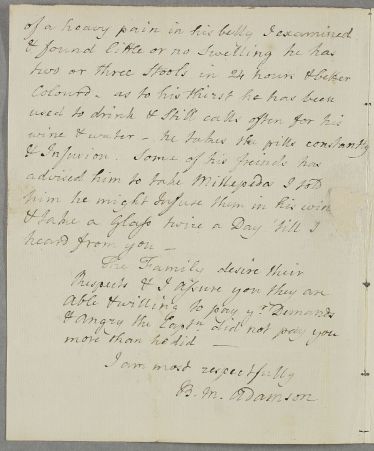 of a heavy pain in his belly I examined
& found little or no Swelling he has
two or three Stools in 24 hours & better
Colourd - as to his thirst he has been
used to drink & Still calls often for his
wine & water - he takes the pills constantly
& Infusion. Some of his freinds has
advised him to take Millepedes I told
him he might Infuse them in his wine
& take a Glass twice a Day 'till I
heard from you -
The Family desire their
Respects & I assure you they are
able & willing to pay yr. Demands
& angry the Captn. did not pay you
more than he did -
I am most respectfully
B. M. Adamson